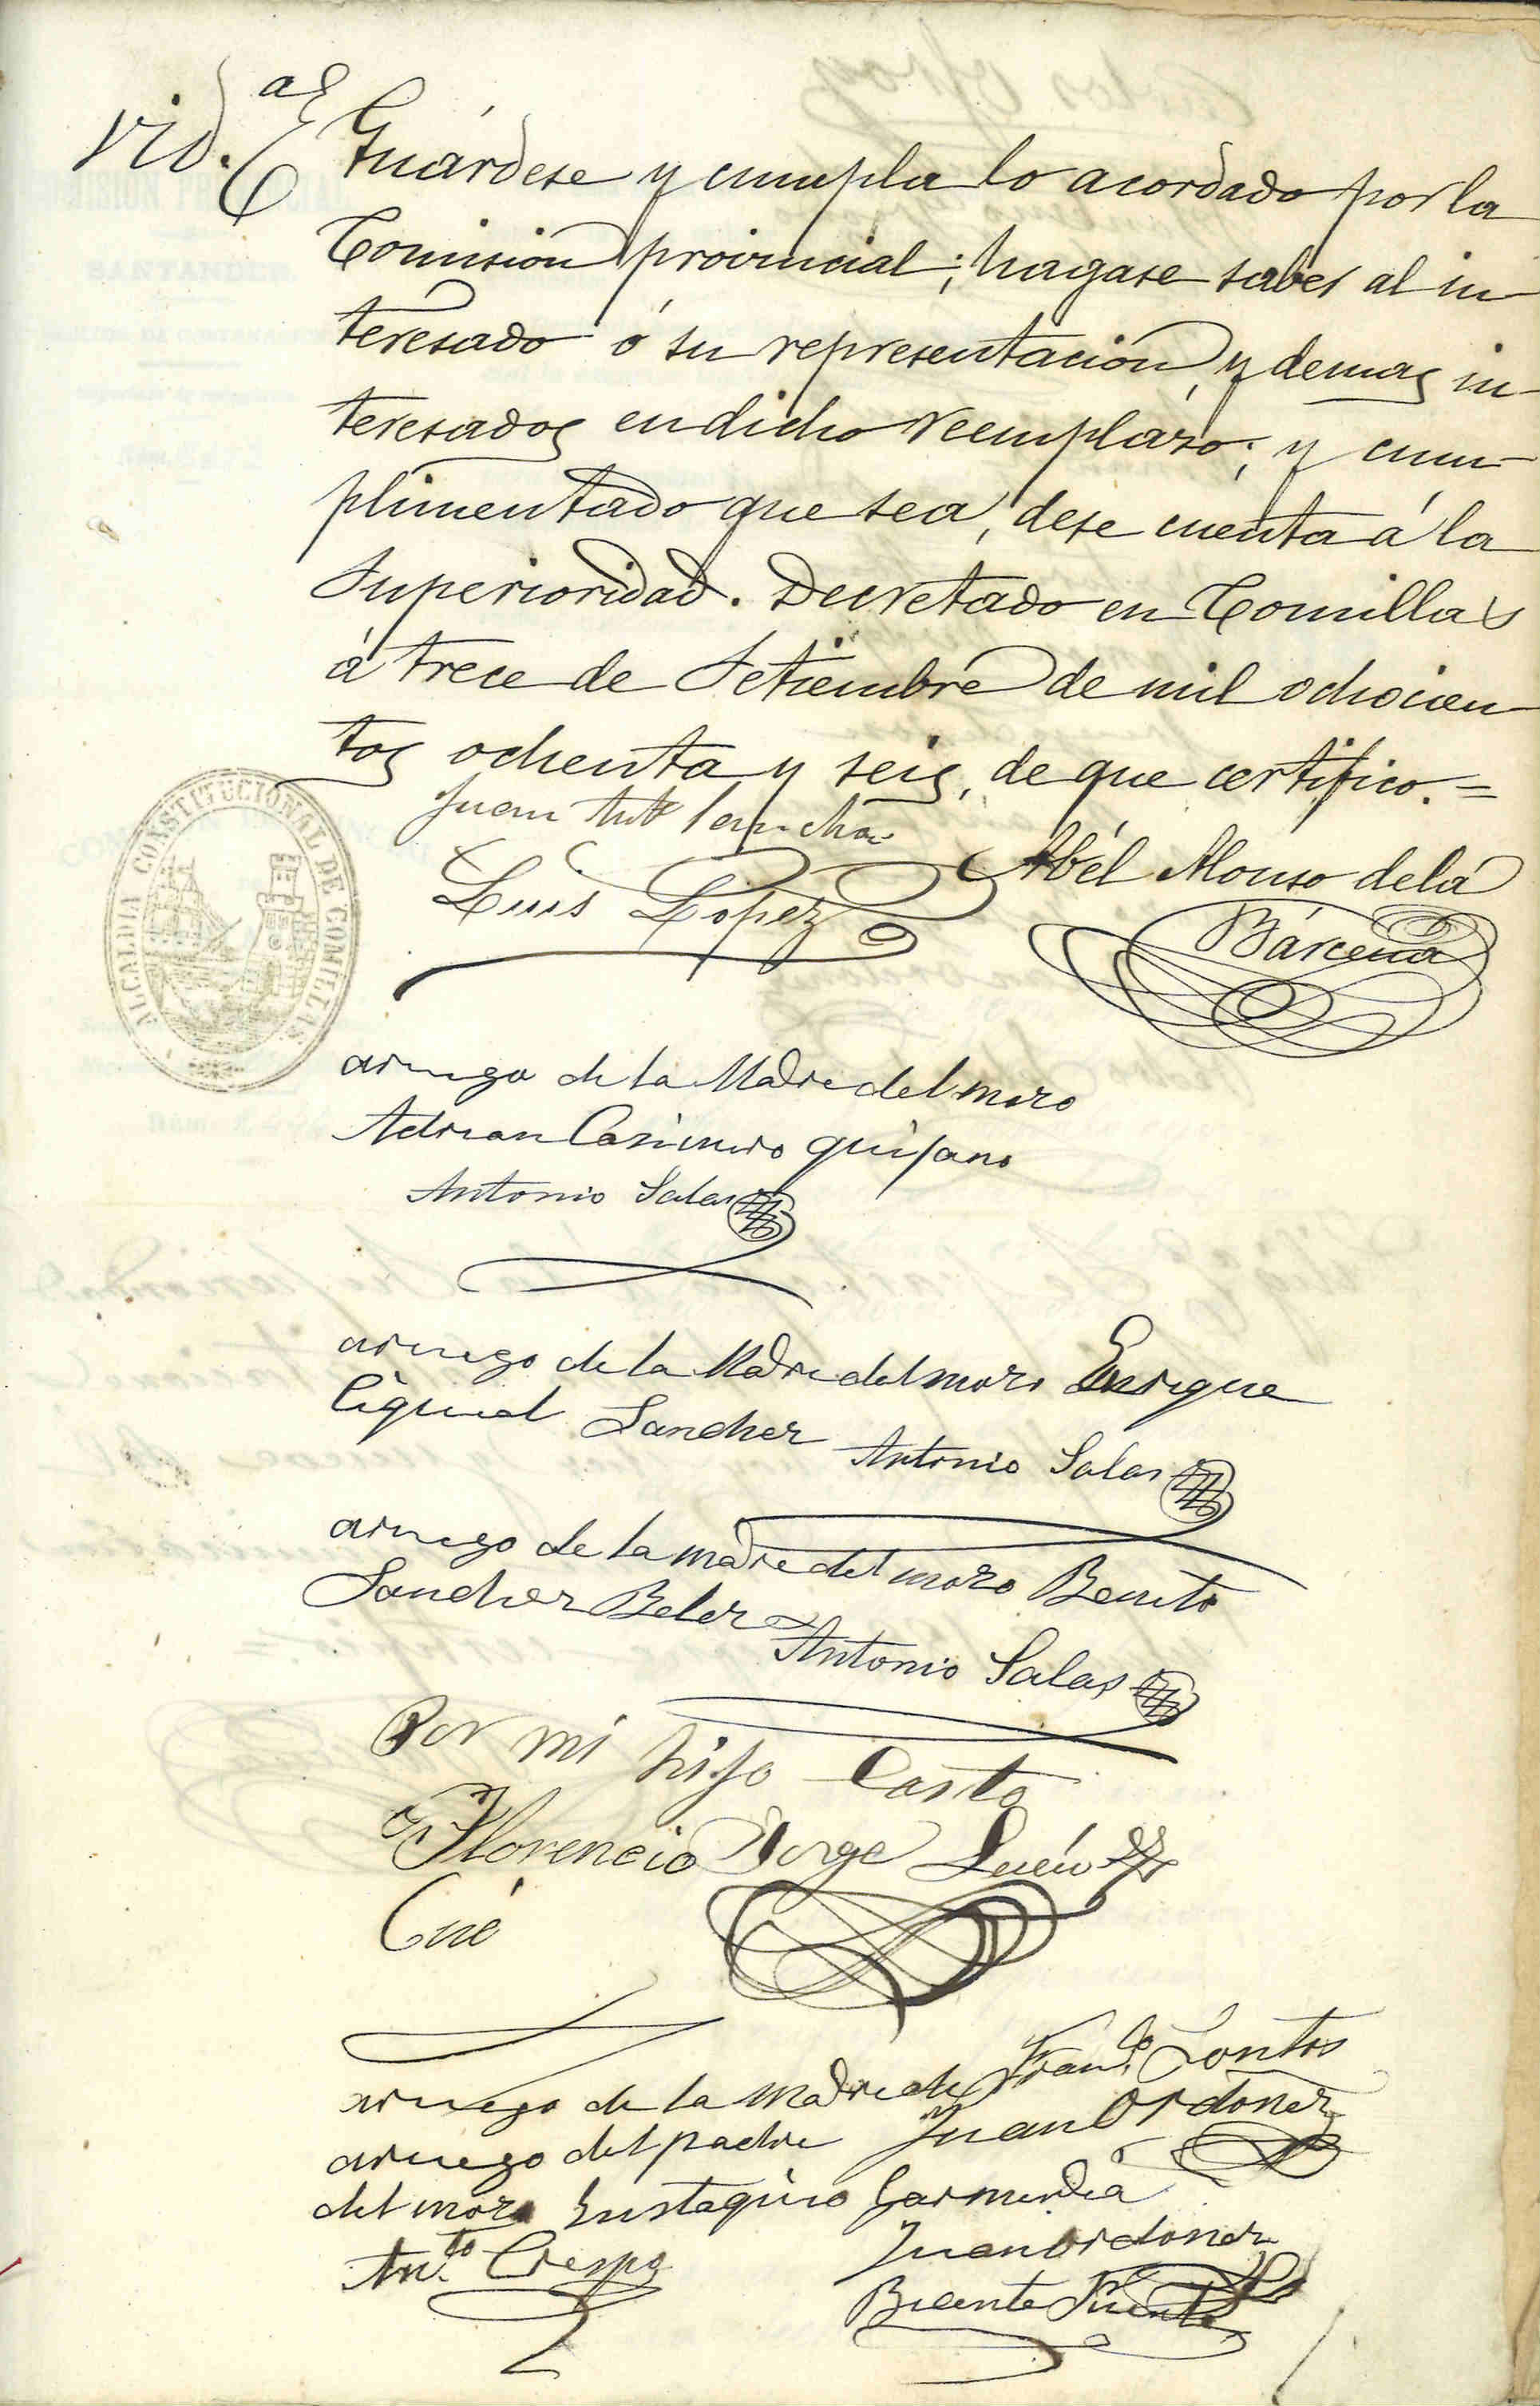 Vid.ª
Guárdese y cumpla lo acordado por la
Comision provincial; hagase saber al in-
teresado ó su representación, y demas in-
teresados en dicho reemplazo; y cum-
plimentado que sea, dese cuenta á la
Superioridad. Decretado en Comillas
á trece de Setiembre de mil ochocien-
tos ochenta y seis, de que certifico.=
Juan Anto
Luis Lopez
Abél Alonso de la
Bárcena
ALCALDIA CONSTITUCIONAL DE COMILLAS
aruego de la Madre del mozo
Adrian Casimiro quijano
Antonio Salas
aruego de la Madre del mozo Enrique
Sanchez Antonio Salas
aruego de la madre del mozo Benito
Sanchez Belez
Antonio Salas
Por mi hijo Casto
Florencio Jorge
Cué
aruego de la Madre de Fran.co Santos
aruego del padre Juan Ordoñez
del mozo Eustaquio Garmendia
Juan Ordoñez
An.to Crespo
Bicente Fuente